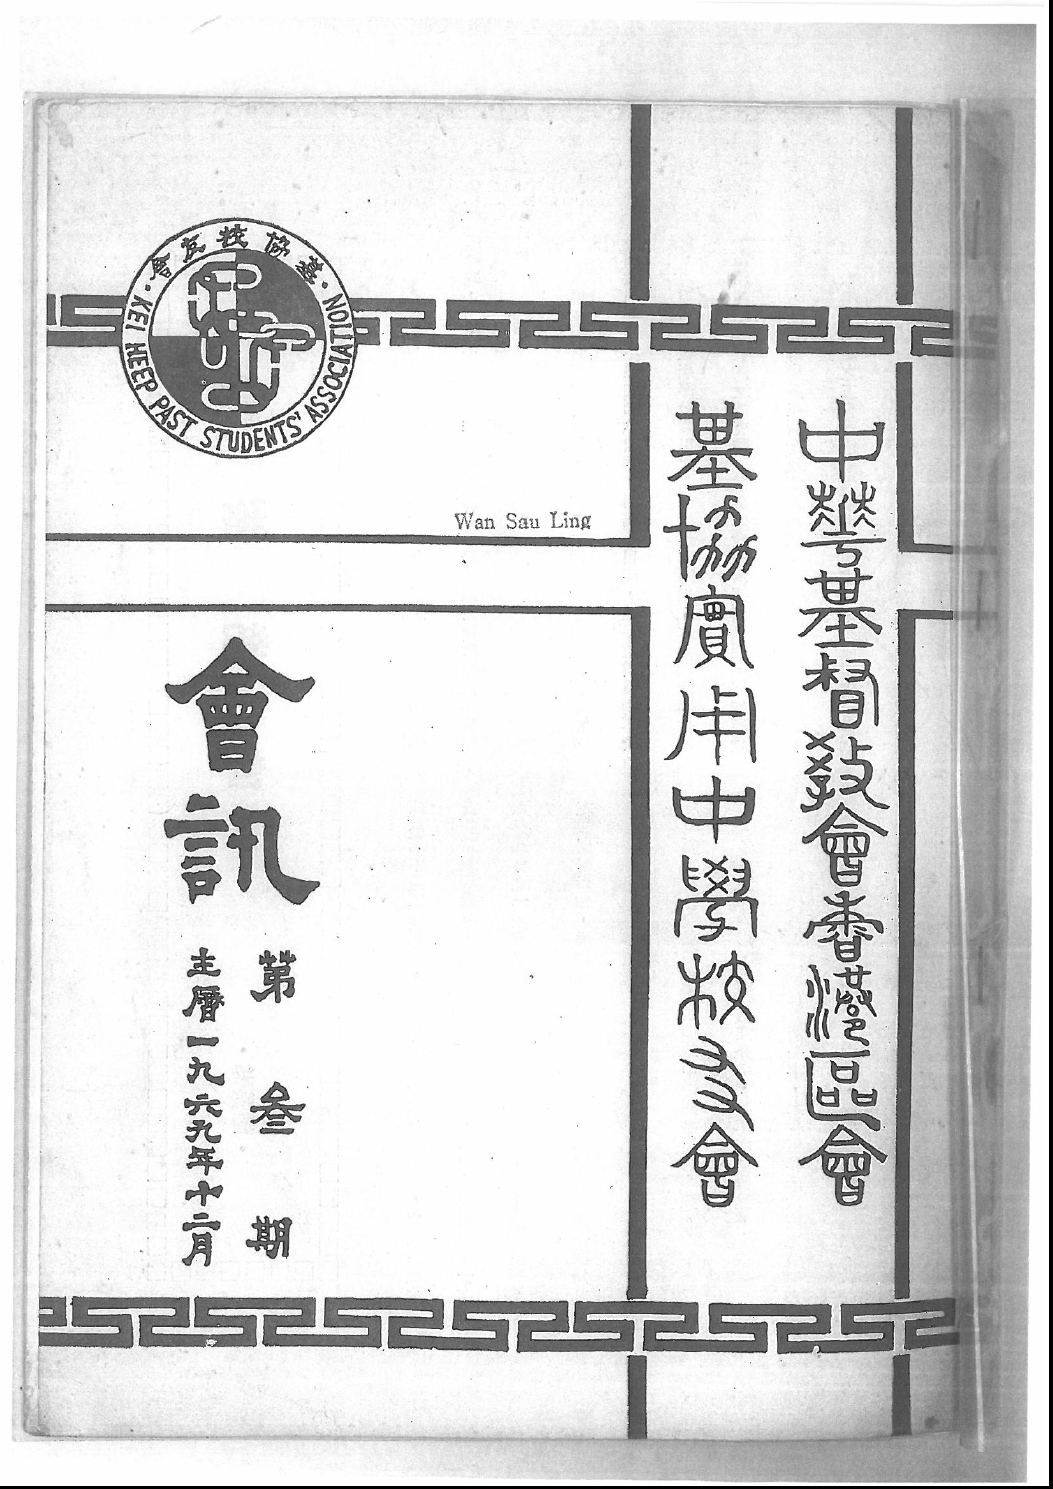 中華基督教會香港區會
基協實用中學校友會
基協校友會
KEI HEEP PAST STUDENTS' ASSOCIATION
Wan Sau Ling
會訊
第叁期
主曆一九六九年十二月